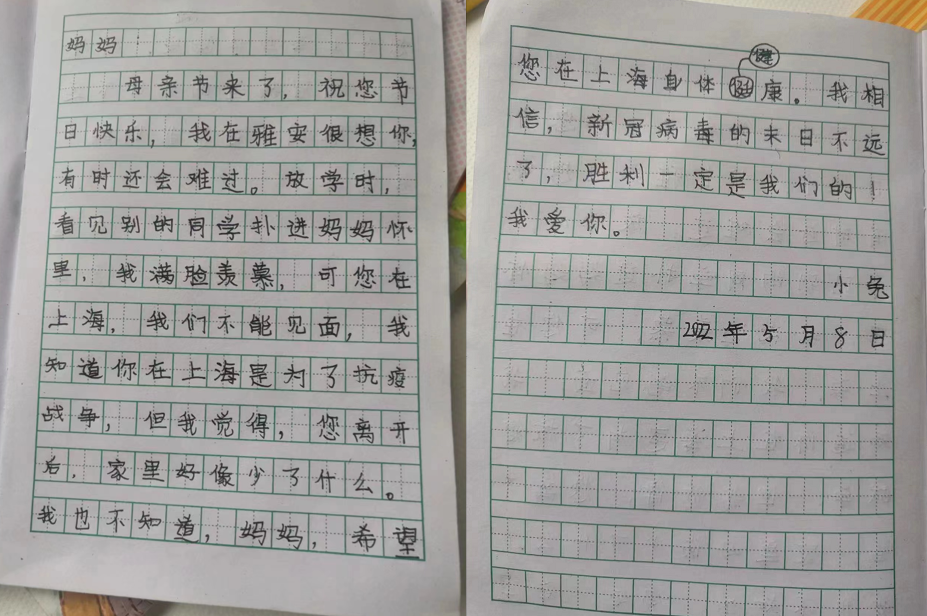 妈妈:
母亲节来了,祝您节
日快乐,我在雅安很想你,
有时还会难过。放学时,
看见别的同学扑进妈妈怀
里,我满脸羡慕,可您在
上海,我们不能见面,我
知道你在上海是为了抗疫
战争,但我觉得,您离开
后,家里好像少了什么。
我也不知道,妈妈,希望
健
您在上海身体康。我相
信,新冠病毒的末日不远
了,胜利一定是我们的!
我爱你。
小兔
2022年5月8日